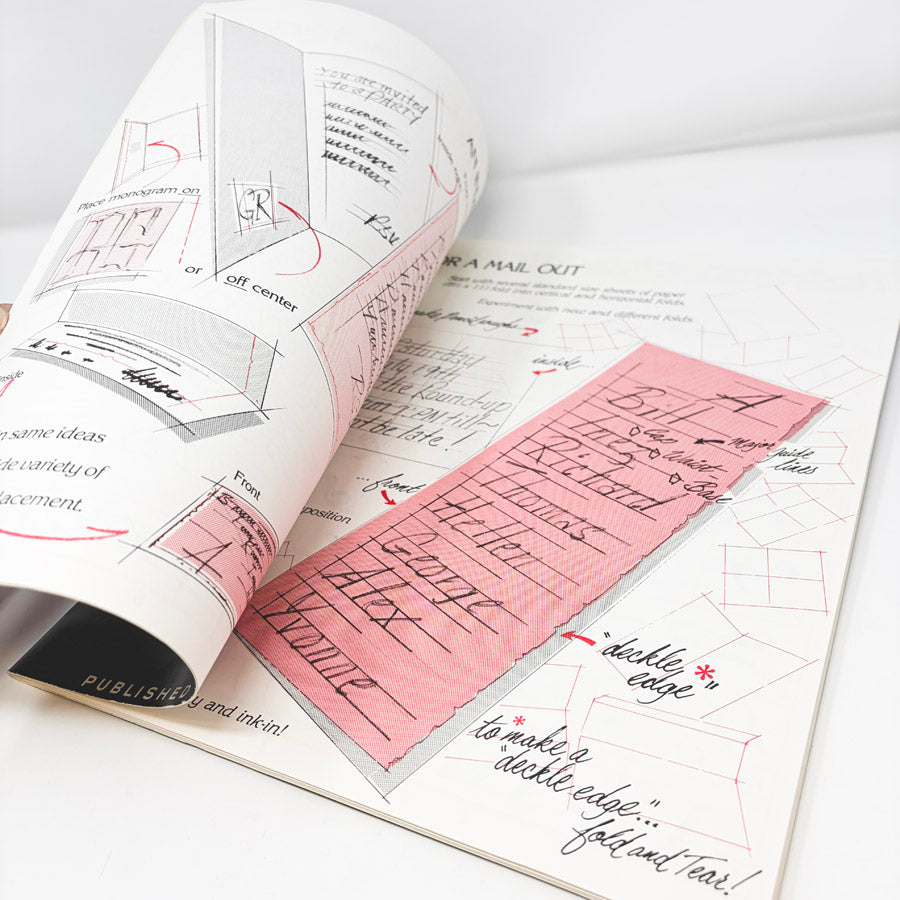 You are invited
to a PARTY
RSV
Place monogram on
GR
or off center
n same ideas
de variety of
lacement.
Front
A
PUBLISHED
y and ink-in!
OR A MAIL OUT
Start with several standard size sheets of paper
fold into vertical and horizontal folds.
Experiment with new and different folds.
inside...
the Round-up
PM till
be late!
...front
position
A
Bill
Inez
Richard
Thomas
Helen
George
Alex
Yvonne
Cap
Waist
Base
Major Guide
lines
"deckle
edge*"
*
to make a
"deckle edge"...
fold and Tear!